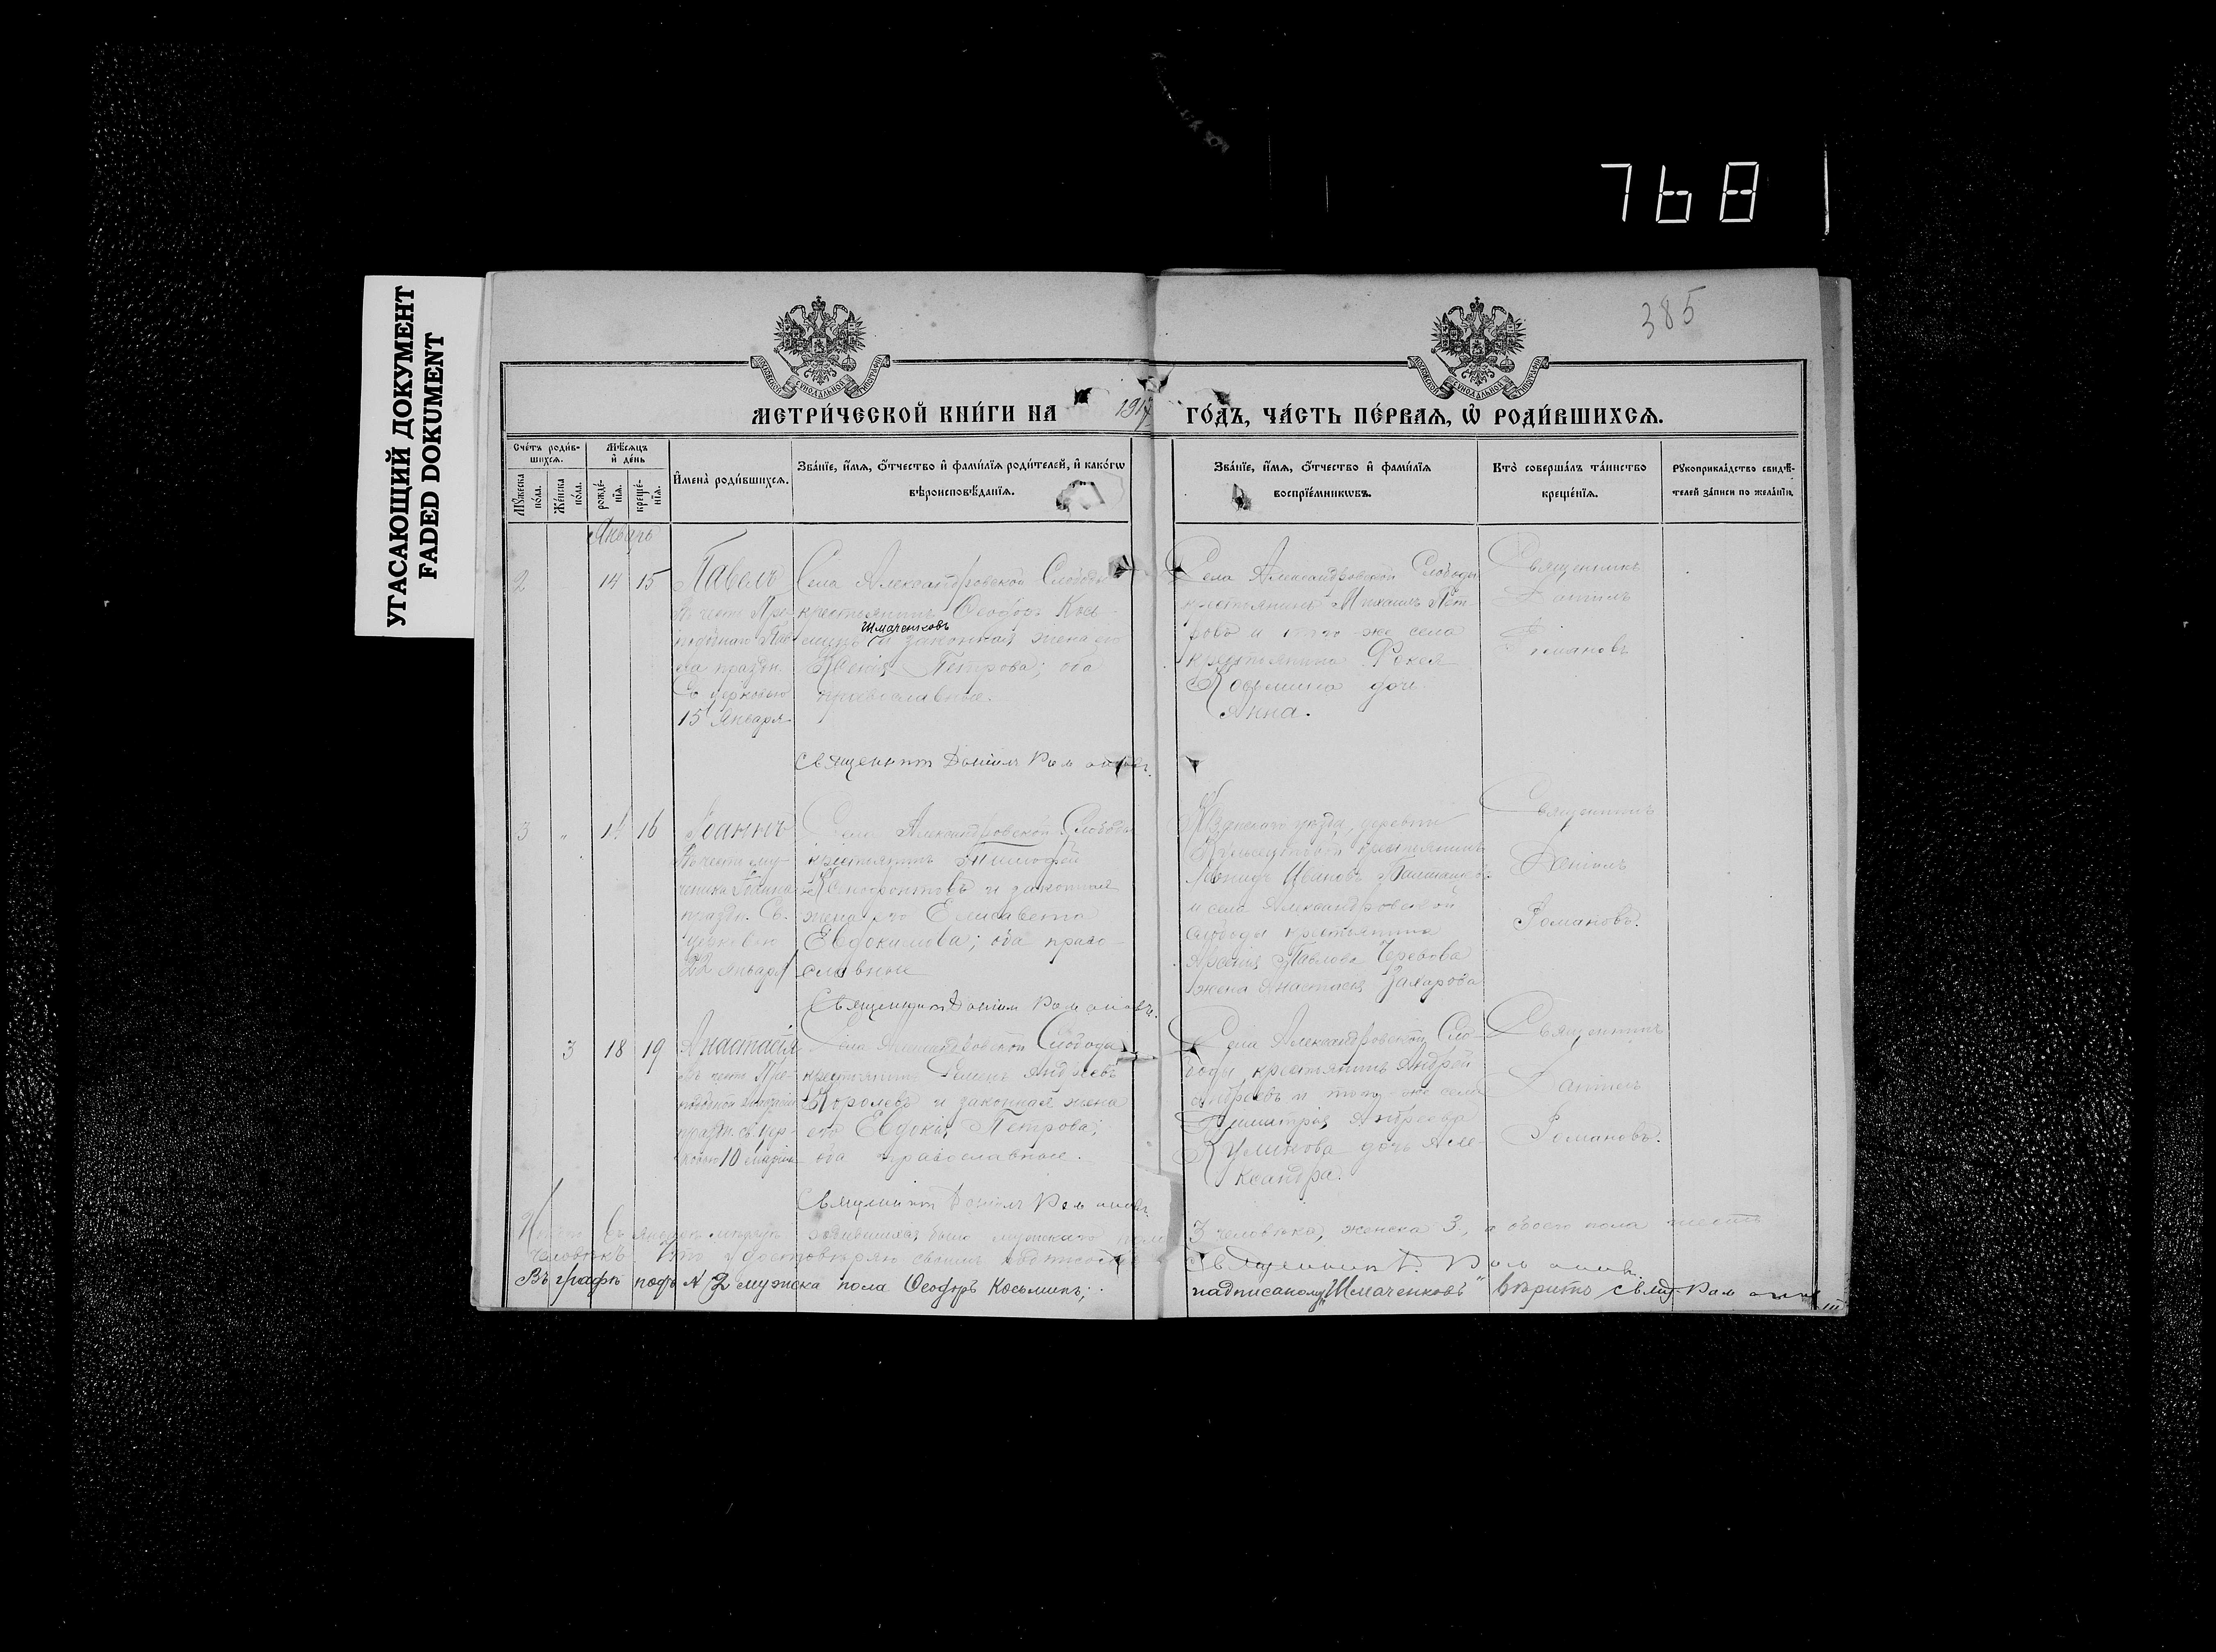 768
УГАСАЮЩИЙ ДОКУМЕНТ
FADED DOCUMENT
385
МЕТРИ́ЧЕСКОЙ КНИ́ГИ НА 1917 ГО́ДЪ, ЧА́СТЬ ПЕ́РВАЯ, Ѡ҆ РОДИ́ВШИХСЯ.
Сче́тъ роди́в-
шихся.
Мꙋ́жеска по́ла.
Же́нска по́ла.
Мѣ́сяцъ и҆ де́нь
рожде́-
нїя.
креще́-
нїя.
И҆мена̀ роди́вшихся.
Зва́нїе, и҆́мя, ѻ҆́тчество и҆ фами́лїя роди́телей, и҆ како́гѡ
вѣроисповѣ́данїя.
Зва́нїе, и҆́мя, ѻ҆́тчество и҆ фами́лїя
воспрїе́мникѡвъ.
Кто̀ соверша́лъ та́инство
креще́нїя.
Рꙋкоприкла́дство свидѣ́-
телей за́писи по жела́нїю.
Январь
2 14 15
Павелъ
въ честь Пре-
подобнаго Пав-
ла праздн.
Св. церковью
15 Января
Села Александровской Слободы
крестьянинъ Ѳеодоръ Кось-
Шмаченковъ
минъ и законная жена его
Ксенія Петрова; оба
православные.
Священникъ Даніилъ Романовъ.
Села Александровской Слободы
крестьянинъ Михаилъ Пет-
ровъ и того же села
крестьянина Фокея
Косьмина дочь
Анна.
Священникъ
Даніилъ
Романовъ
3 „ 14 16
Іоаннъ
въ честь му-
ченика Іоанна
праздн. Св.
церковью
22 января
Села Александровской Слободы
крестьянинъ Тимофей
Ксенофонтовъ и законная
жена его Елисавета
Евдокимова; оба право-
славные
Священникъ Даніилъ Романовъ.
уѣзда, деревни
крестьянинъ
Иванов
и села Александровской
слободы крестьянина
Арсенія Павлова Черевова
жена Анастасія Захарова
Священникъ
Даніилъ
Романовъ.
3 18 19
Анастасія
въ честь Пре-
подобной Анастасіи
праздн. св. цер-
ковью 10 марта
Села Александровской Слободы
крестьянинъ Семенъ Андреевъ
Королевъ и законная жена
его Евдокія Петрова;
оба православные.
Священникъ Даніилъ Романовъ.
Села Александровской Сло-
боды крестьянинъ Андрей
Андреевъ и того же села
Димитрія Андреева
Куликова дочь Алек-
сандра.
Священникъ
Даніилъ
Романовъ.
Итого въ Январѣ мѣсяцѣ родившихся было мужескаго пола 3 человѣка, женска 3, а обоего пола шесть
человѣкъ. Что и удостовѣряю своимъ подписомъ Священникъ Д. Романовъ.
Въ графѣ подъ № 2 мужска пола Ѳеодоръ Косьминъ; надписаному „Шмаченковъ" вѣрить свящ. Романовъ